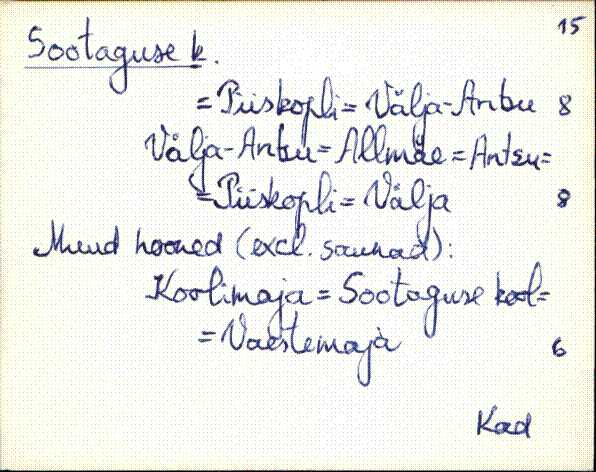 15
Sootaguse k.
= Piiskopli = Välja-Antsu 8
Välja-Antsu = Allmäe = Antsu =
= Piiskopli = Välja 8
Muud hooned (excl. saunad):
Koolimaja = Sootaguse kool =
= Vaestemaja 6
Kad